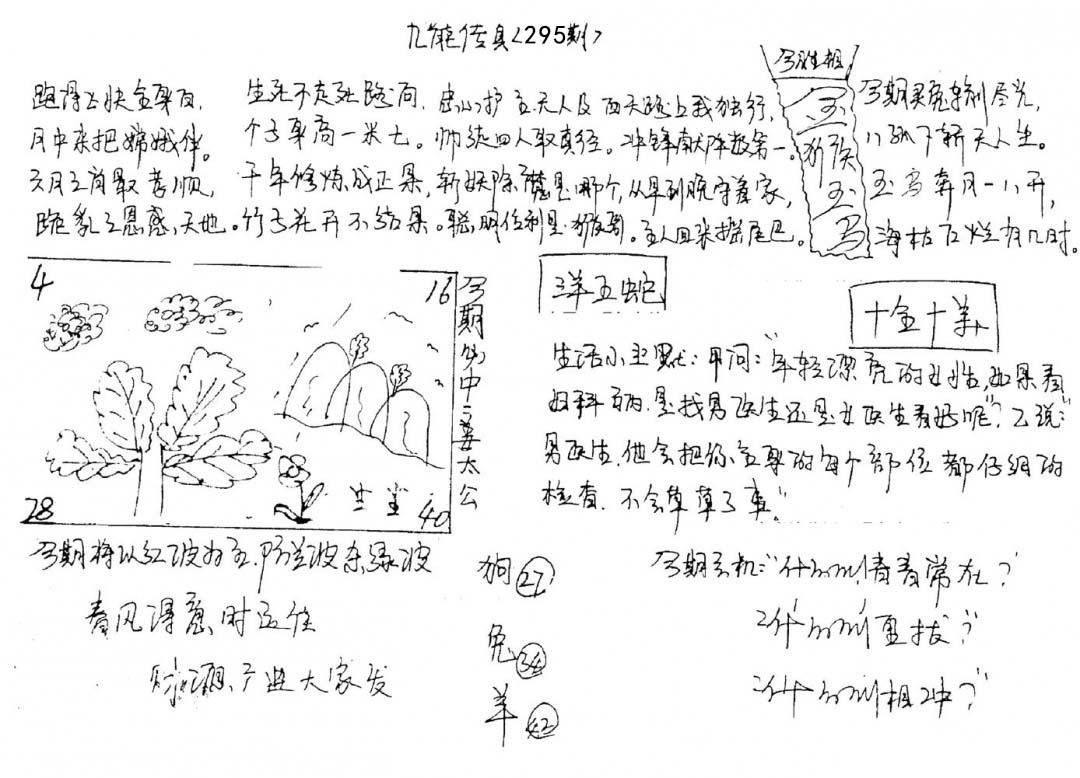 九龍传真<295期>
跑得上快全舉百,
月中来把嫦娥伴。
三月之前最孝顺,
跪乳之恩感天地。
生死不走死路向,
个子身高一米七。
千年修炼成正果,
竹子花开不结果。
忠心护主天人及
师徒四人取真经。
斩妖除魔是哪个,
聪明伶利是猴哥。
西天路上我独行,
冲锋献阵数第一。
从早到晚守着家,
主人回来摇尾巴。
今期
玉
猴
玉
马
今期买兔输尽光,
八张下轿天人生。
玉马奔月一八开,
海枯石烂有几时。
4
16
28
40
今期特中三姜太公
羊五蛇
十全十羊
生活小主默:甲问:"年轻漂亮的女性,如果看
妇科病,是找男医生还是女医生看好呢?"乙说:"
男医生,他会把你全身的每个部位都仔细的
检查,不会草草了事。"
今期特以红波为主,防兰波杂绿波
春风得意时运佳
财源广进大家发
狗27
兔34
羊42
今期玄机:"什么叫青春常在?"
"什么叫重拔?"
"什么叫相冲?"